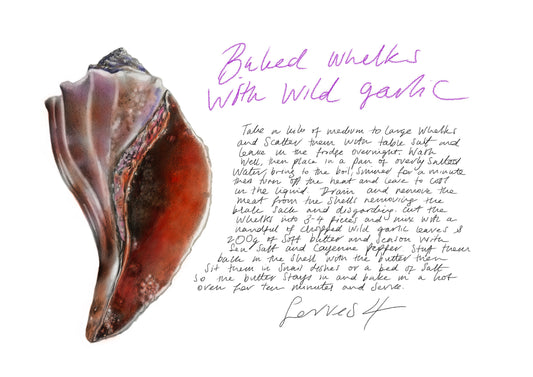 Baked whelks
with wild garlic
Take a kilo of medium to large whelks
and scatter them with table salt and
leave in the fridge overnight. Wash
well, then place in a pan of overly salted
water, bring to the boil, simmer for a minute
then turn off the heat and leave to cool
in the liquid. Drain and remove the
meat from the shells removing the
sack and disgarding. Cut the
whelks into 3-4 pieces and mix with a
handful of chopped wild garlic leaves &
200g of soft butter and season with
sea salt and cayenne pepper stuff them
back in the shell with the butter then
sit them in snail dishes or a bed of salt
so the butter stays in and bake in a hot
oven for ten minutes and serve.
Serves 4